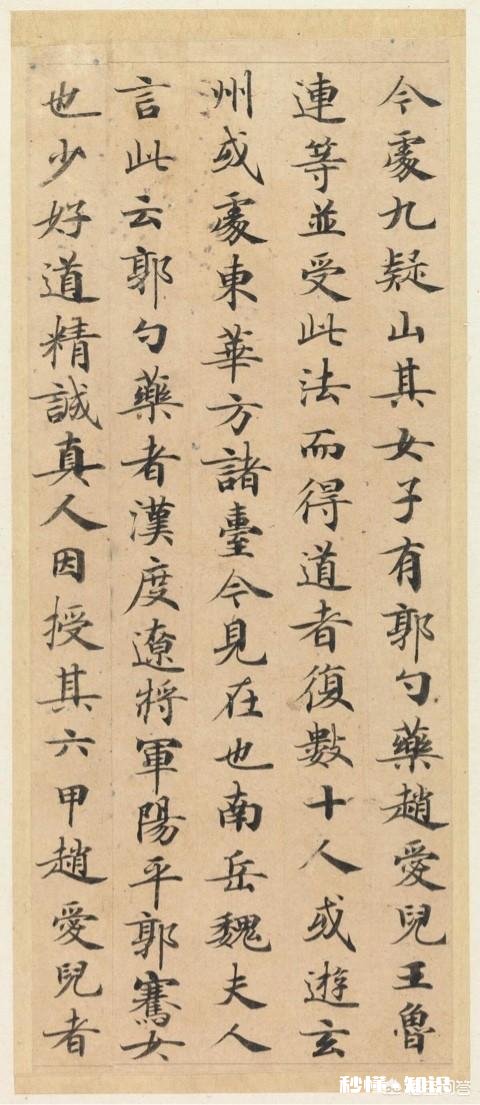 今處九疑山其女子有郭勺藥趙愛兒王魯
連等並受此法而得道者復數十人或遊玄
州或處東華方諸臺今見在也南岳魏夫人
言此云郭勺藥者漢度遼將軍陽平郭騫女
也少好道精誠真人因授其六甲趙愛兒者
秒懂知识